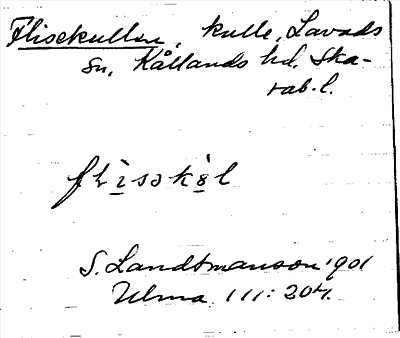 Flisekullen, kulle, Lavads
sn, Kållands hd, Ska-
rab. l.
S. Landtmanson 1901
Ulma 111: 204.